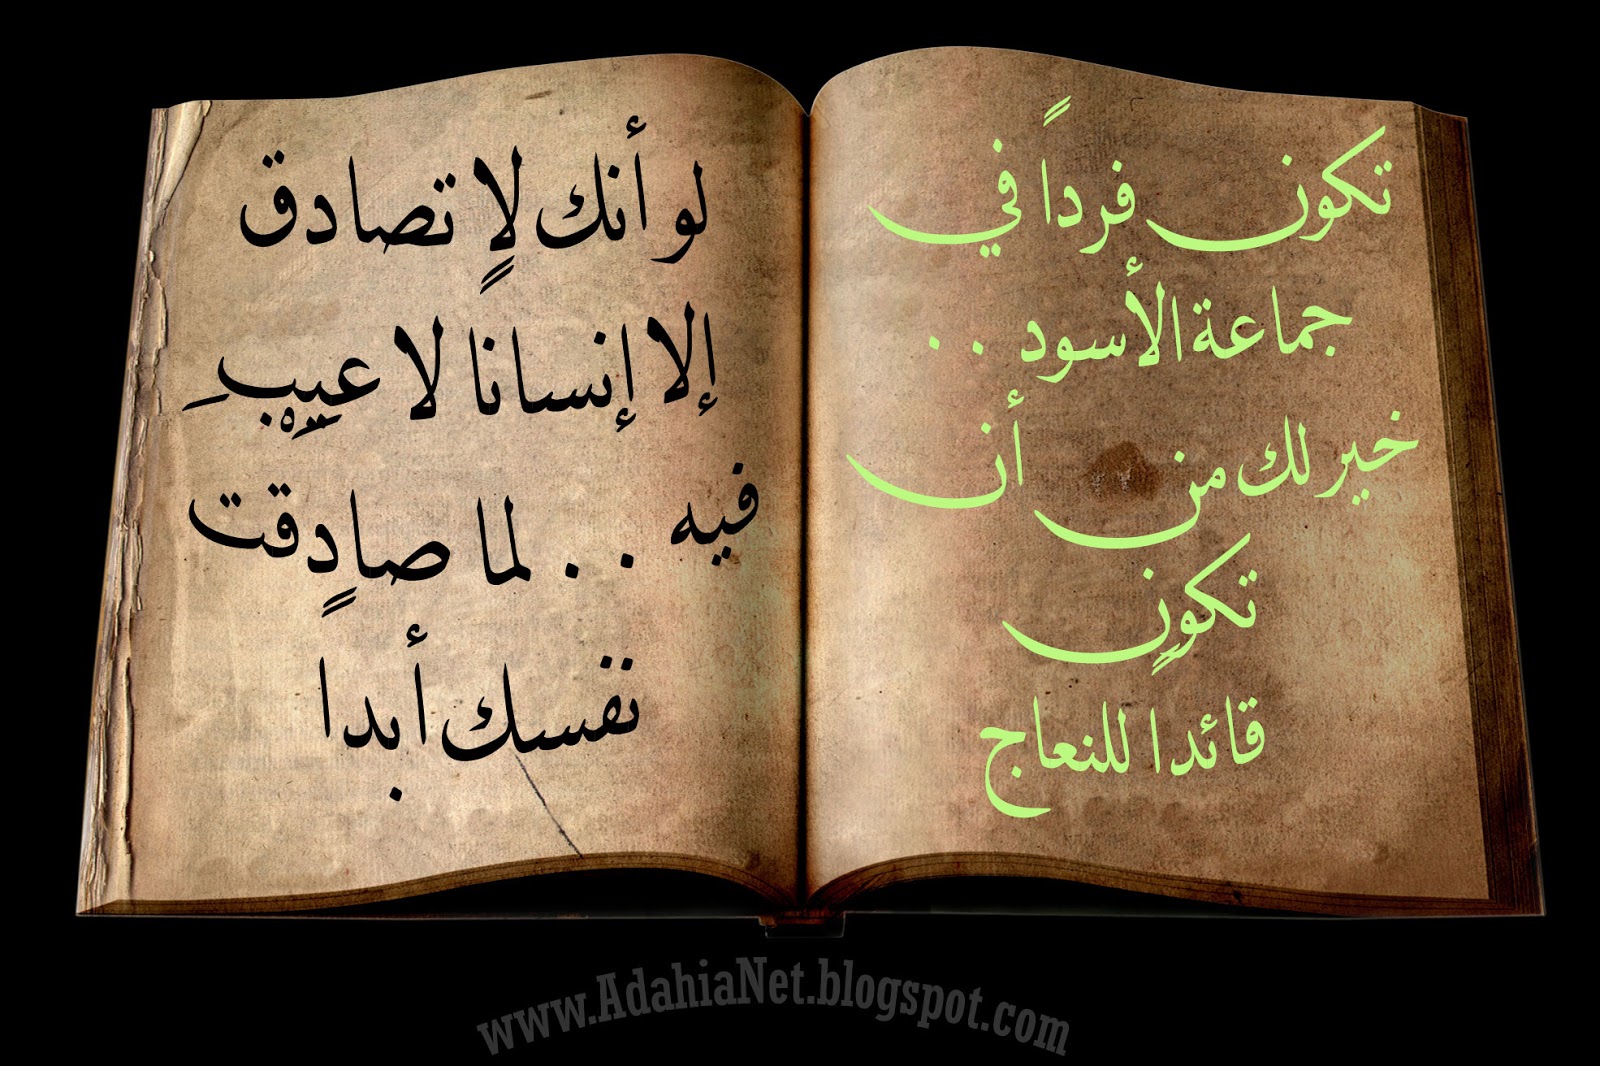 تكون فرداً في
جماعة الأسود . .
خير لك من أن
تكونٍ
قائدا للنعاج
لو أنك لاٍ تصادق
إلا إنسانا لا عيب
فيه . . لما صادٍقت
نفسك أبدا
www.AdahiaNet.blogspot.com